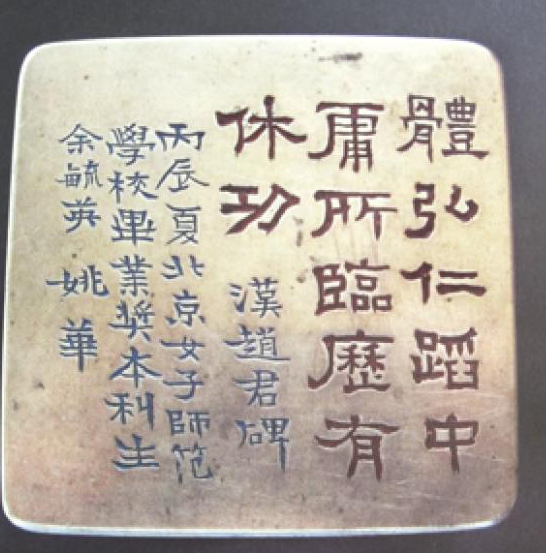 體弘仁蹈中
庸所臨歷有
休功
漢趙君碑
丙辰夏北京女子師范
學校畢業獎本科生
余毓英 姚華